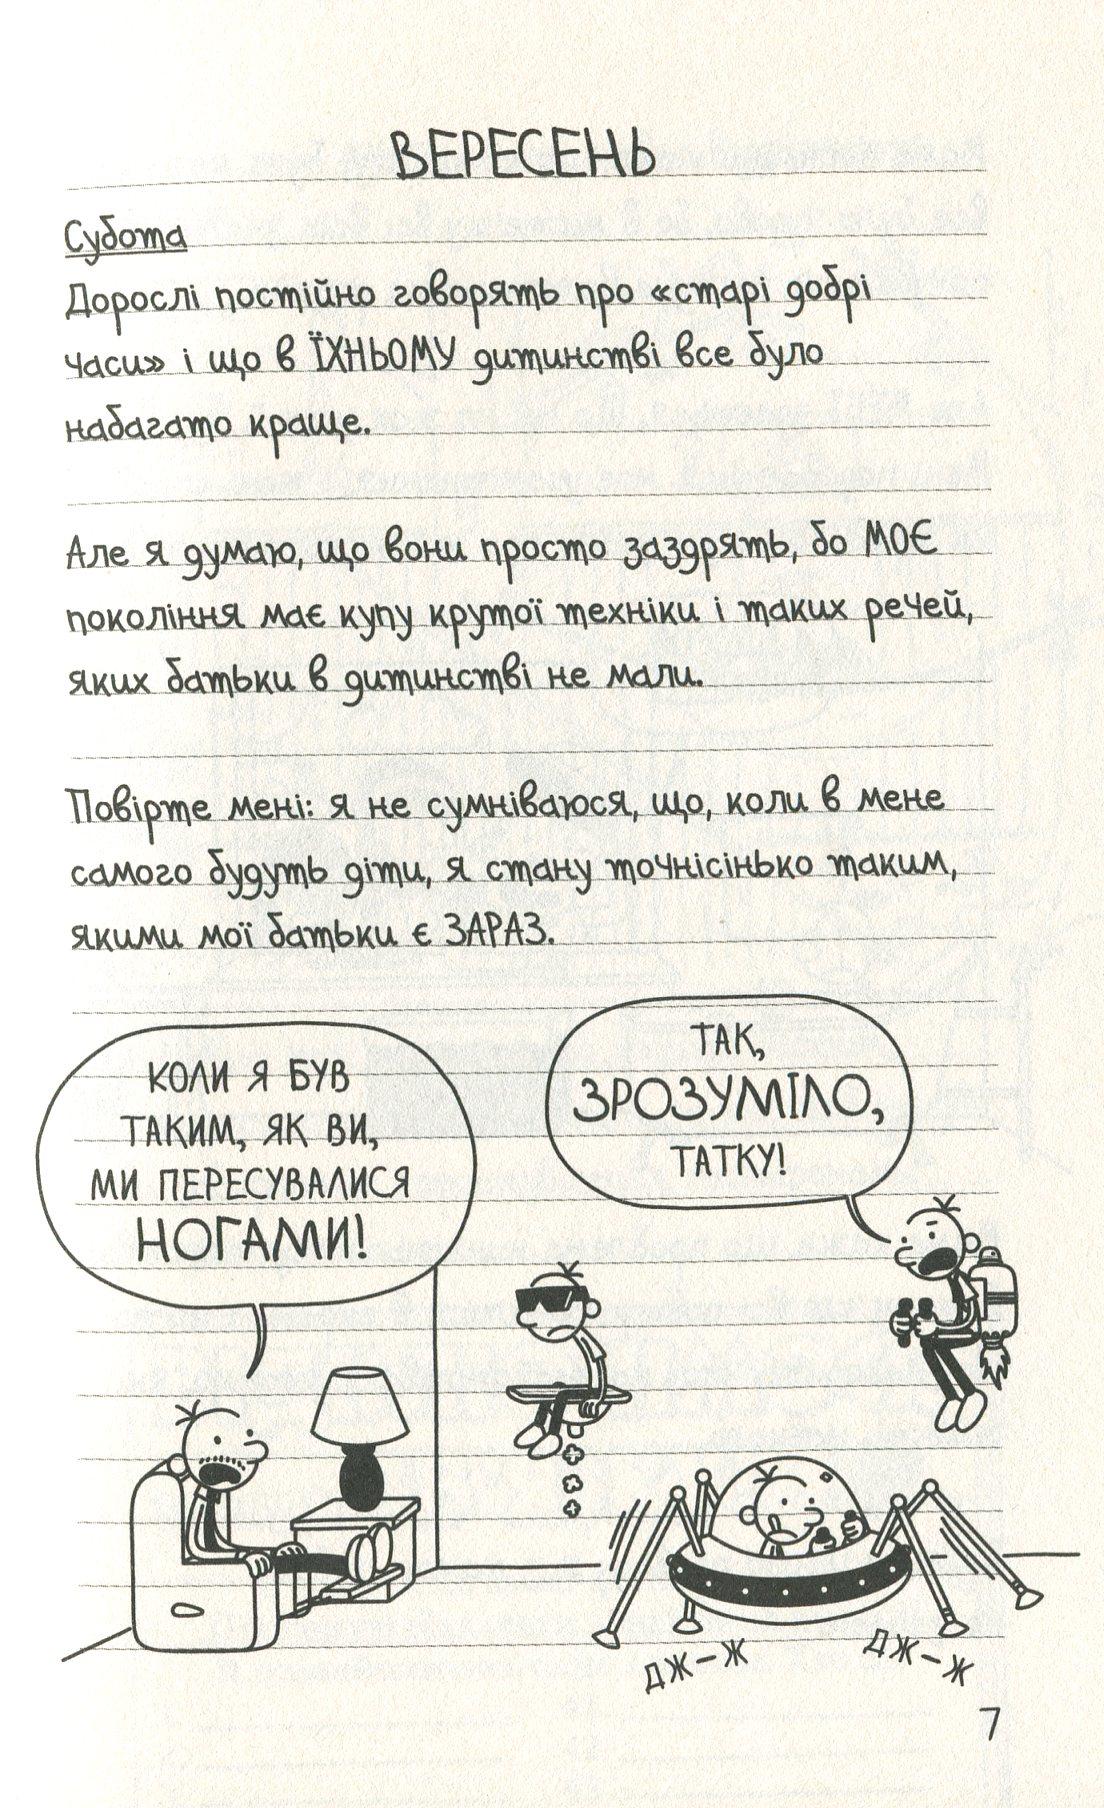 ВЕРЕСЕНЬ
Субота
Дорослі постійно говорять про «старі добрі
часи» і що в ЇХНЬОМУ дитинстві все було
набагато краще.
Але я думаю, що вони просто заздрять, бо МОЄ
покоління має купу крутої техніки і таких речей,
яких батьки в дитинстві не мали.
Повірте мені: я не сумніваюся, що, коли в мене
самого будуть діти, я стану точнісінько таким,
якими мої батьки є ЗАРАЗ.
КОЛИ Я БУВ
ТАКИМ, ЯК ВИ,
МИ ПЕРЕСУВАЛИСЯ
НОГАМИ!
ТАК,
ЗРОЗУМІЛО,
ТАТКУ!
ДЖ-Ж
ДЖ-Ж
7